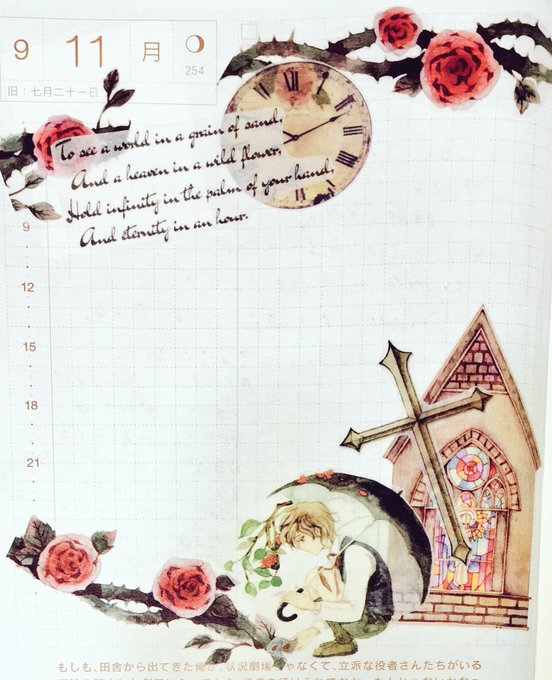 9 11 月
254
旧:七月二十一日
To see a world in a grain of sand,
And a heaven in a wild flower,
Hold infinity in the palm of your hand,
And eternity in an hour.
9
12
15
18
21
もしも、田舎から出てきた俺が、状況劇場じゃなくて、立派な役者さんたちがいる